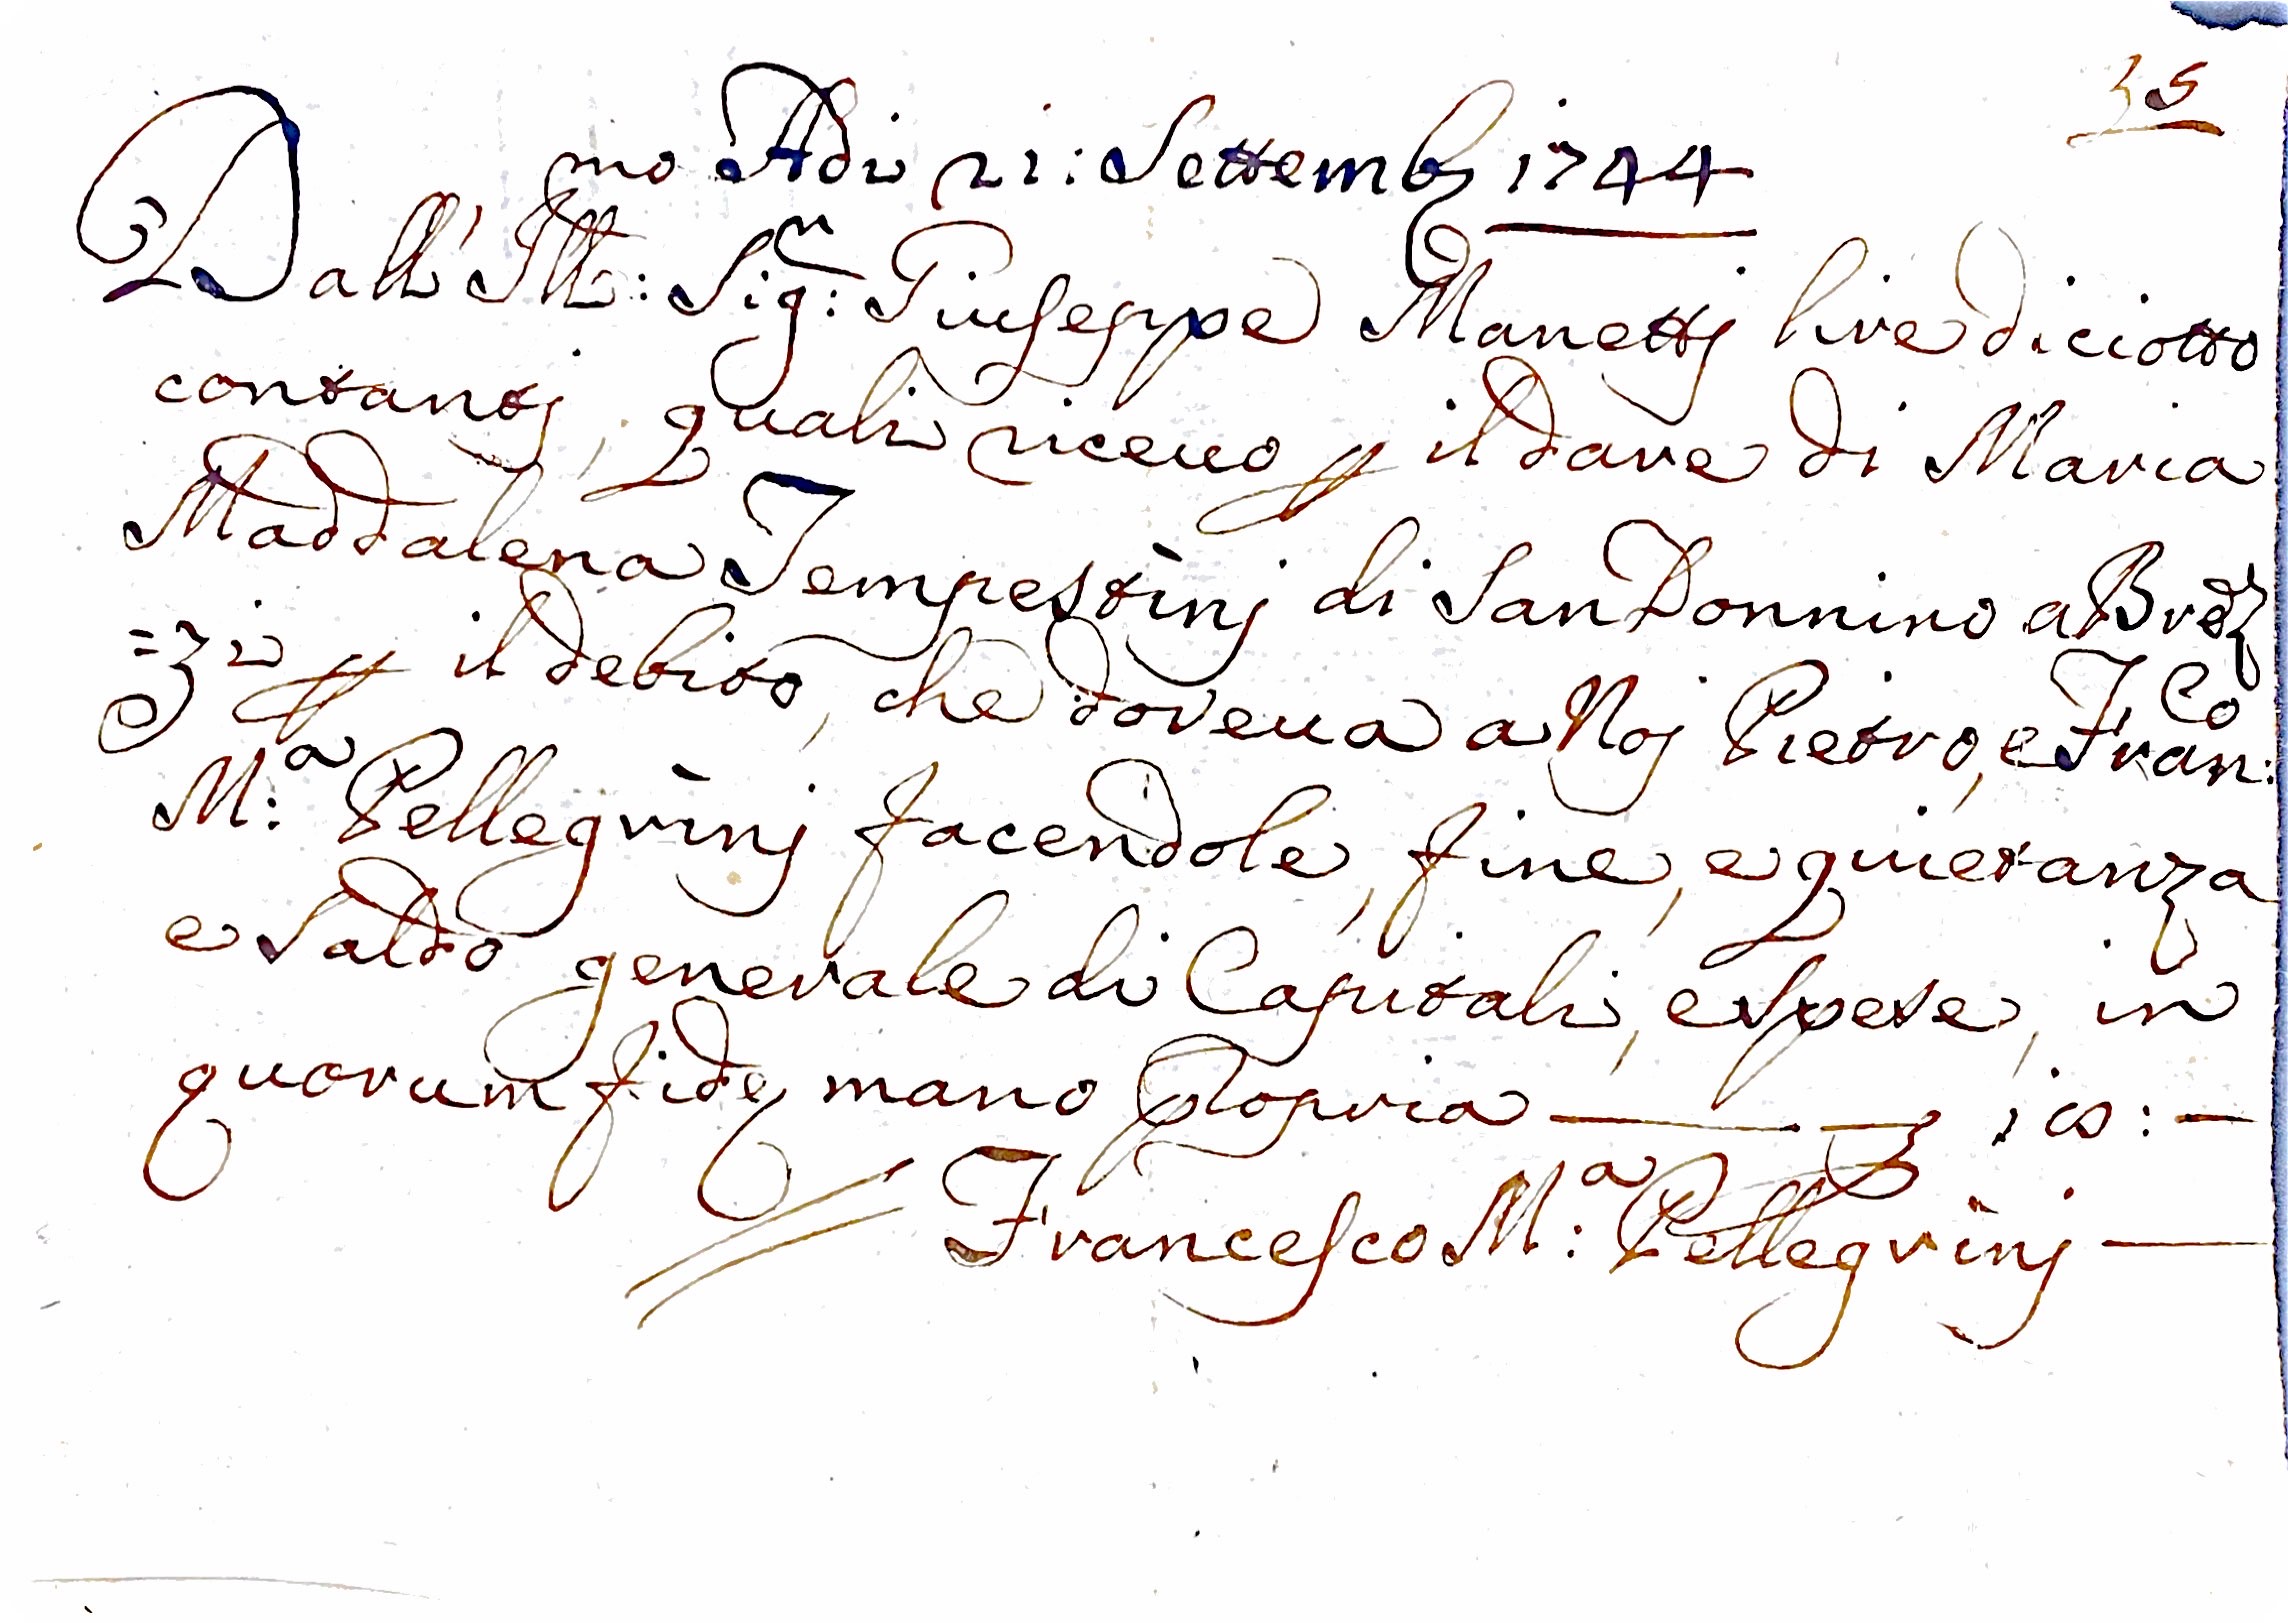 35
Adi 21: Settemb 1744
Dall' Ill:mo Sig:r Giuseppe Manettj lire diciotto
contantj, quali riceuo p il dare di Maria
Maddalena Tempestinj di San Donnino a Broz
=zi p il debito, che doveua a Noj Pietro, e Fran:co
M:a Pellegrinj facendole, fine, e quietanza
e saldo generale di Capitali, e spese, in
quorum fide mano propria — 18: —
Francesco M:a Pellegrinj —